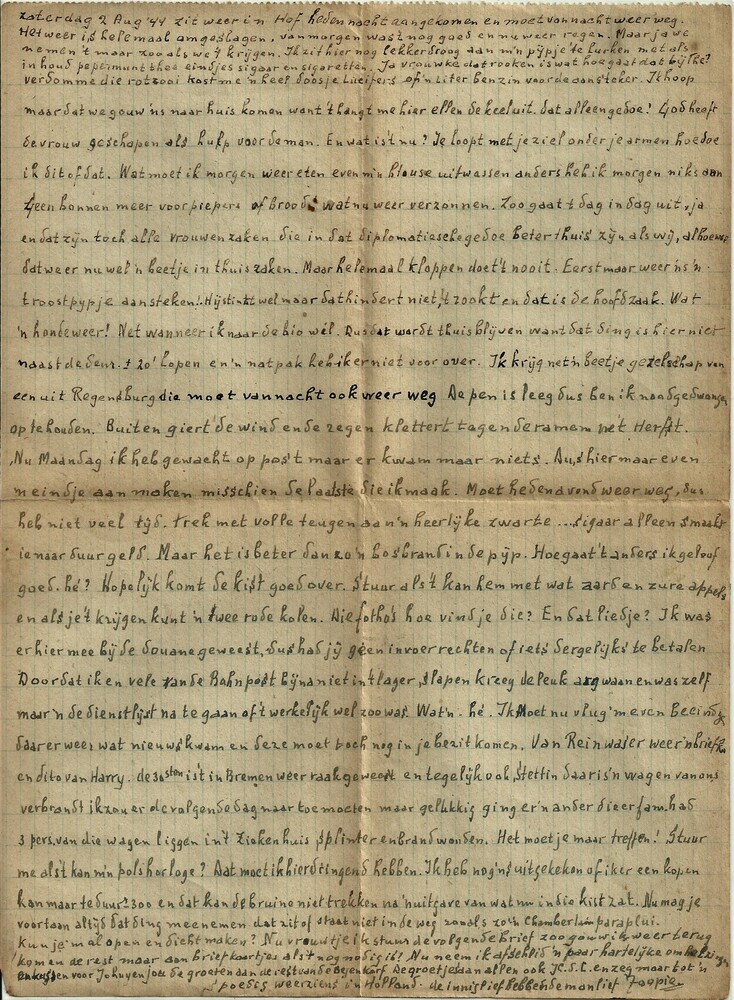 zaterdag 2 Aug '44 zit weer in Hof hedennacht aangekomen en moet vannacht weer weg.
Het weer is helemaal omgeslagen, van morgen was't nog goed en nu weer regen. Maar ja we
nemen't maar zoo als we 'j krijgen. Ik zit hier nog lekker droog aan m'n pijpje te lurken met als
inhoud pepermunt thee eindjes sigaar en sigaretten. Ja vrouwke dat rooken is wat hoe gaat dat bij the?
verdomme die rotzooi kost me 'n heel doosje Lucifers of 'n Liter benzin voor de aansteker. Ik hoop
maar dat we gouw 'ns naar huis komen want 't hangt me hier ellendekeel uit. dat alleen gedoe! God heeft
de vrouw geschapen als hulp voor de man. En wat is 't nu? Je loopt met je ziel onder je armen hoe doe
ik dit of dat. Wat moet ik morgen weer eten even m'n blouse uitwassen anders heb ik morgen niks aan
Geen bonnen meer voor piepers of brood wat nu weer verzonnen. Zoo gaat 't dag in dag uit, ja
en dat zijn toch alle vrouwenzaken die in dat diplomatiesche gedoe beter thuis zijn als wij, alhoewel
dat weer nu wel 'n beetje in thuis zaken. Maar helemaal kloppen doet 't nooit. Eerst maar weer 'ns 'n
troostpypje aansteken! Hij stinkt wel maar dat hindert niet, 't rookt en dat is de hoofdzaak. Wat
'n hondeweer! Net wanneer ik naar de bio wil. Dus dat wordt thuisblijven want dat ding is hier niet
naast de deur. ± 20' lopen en 'n nat pak heb ik er niet voor over. Ik krijg net 'n beetje gezelschap van
een uit Regensburg die moet vannacht ook weer weg De pen is leeg dus ben ik noodgedwongen
op te houden. Buiten giert de wind en de regen klettert tegen de ramen net Herfst.
Nu Maandag ik heb gewacht op post maar er kwam maar niets. Dus hier maar even
'n eindje aan maken misschien de laatste die ik maak. Moet hedenavond weer weg, dus
heb niet veel tijd. trek met volle teugen aan 'n heerlijke zwarte ... sigaar alleen smaakt
ie naar duur geld. Maar het is beter dan zo'n bosbrand in de pijp. Hoe gaat 't anders ik geloof
goed. hé? Hopelijk komt de kist goed over. Stuur als 't kan hem met wat aard en zure appels
en als je 't krijgen kunt 'n twee rode kolen. Die fotho's hoe vind je die? En dat liedje? Ik was
er hier mee bij de douane geweest, dus had jij geen invoerrechten of iets dergelijks te betalen
Doordat ik en vele van de Bahnpost bijna niet in't lager, slapen kreeg de leuk argwaan en was zelf
maar 'n de dienstlijst na te gaan of 't werkelijk wel zoo was. Wat'n. hé. Ik Moet nu vlug 'm even beeindig
daar er weer wat nieuws kwam en deze moet toch nog in je bezit komen. Van Rein was er weer 'n briefke
en dito van Harry. de 30sten is 't in Bremen weer raak geweest en tegelijk ook Stettin daar is 'n wagen van ons
verbrandt ik zou er de volgende dag naar toe moeten maar gelukkig ging er 'n ander die er fam. had
3 pers. van die wagen liggen in 't ziekenhuis splinter en brandwonden. Het moet je maar treffen! Stuur
me als 't kan m'n polshorloge? Dat moet ik hier dringend hebben. Ik heb nog 'ns uitgekeken of ik er een kopen
kan maar te duur 300 en dat kan de bruine niet trekken na 'n uitgave van wat nu in die kist zat. Nu mag je
voortaan altijd dat ding meenemen dat zit of staat niet in de weg zoo als zo'n Chamberlain paraplui.
Kun je 'm al open en dicht maken? Nu vrouwtje ik stuur de volgende brief zoo gouw ik weer terug
komen de rest maar aan briefkaartjes als 't nog nodig is! Nu neem ik afscheid 'n paar hartelijke omhelzingen
en kussen voor Johny en jou de groeten aan de rest van de Bejenkorf De groetjes aan allen ook K.S.C. en zeg maar tot 'n
spoedig weerziens in Holland. de innig liefhebbende man lief Joopie